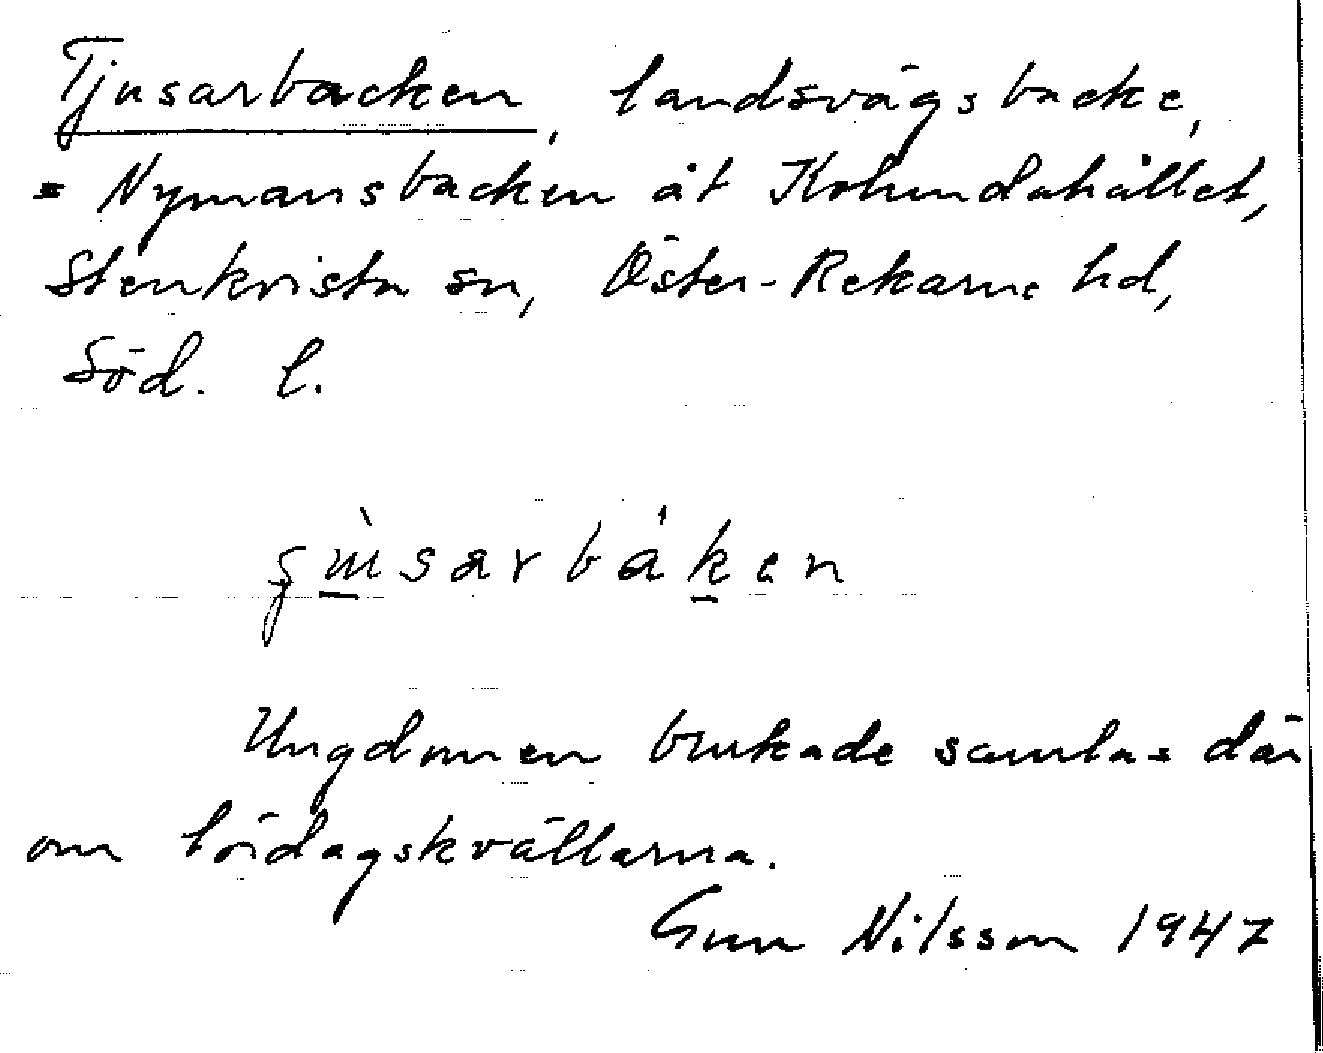 Tjusarbacken, landsvägsbacke,
= Nymansbacken åt Kolundahållet,
Stenkvista sn, Öster-Rekarne hd,
Söd. l.
Ungdomen brukade samlas där
om lördagskvällarna.
Gun Nilsson 1947